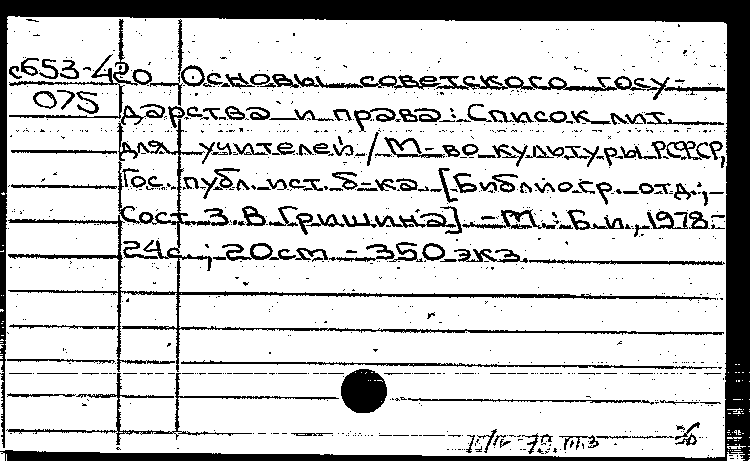 с653-420 Основы советского госу-
075 дарства и права: Список лит.
для учителей / М-во культуры РСФСР,
Гос. публ. ист. б-ка [Библиогр. отд.;
Сост З. В. Гришина]. - М.: Б. и., 1978.-
24с.; 20см - 350 экз.